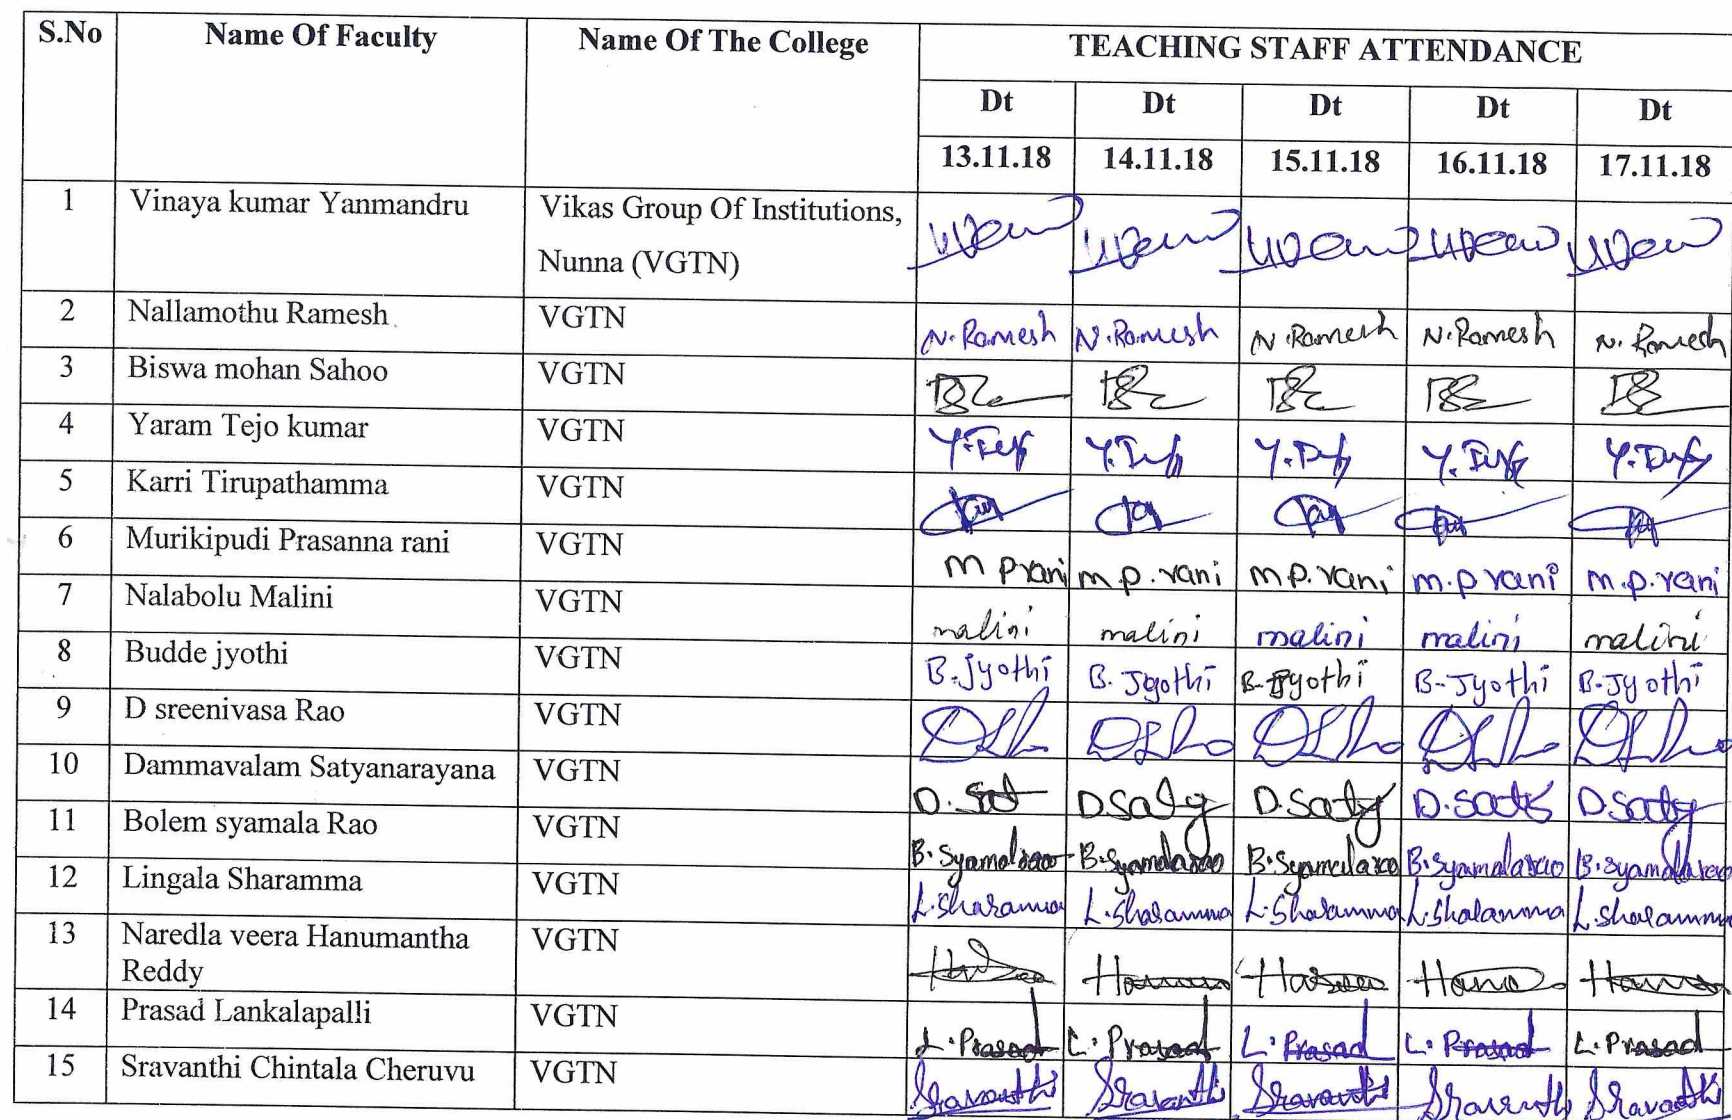 S.No Name Of Faculty Name Of The College TEACHING STAFF ATTENDANCE
Dt Dt Dt Dt Dt
13.11.18 14.11.18 15.11.18 16.11.18 17.11.18
1 Vinaya kumar Yanmandru Vikas Group Of Institutions,
Nunna (VGTN)
2 Nallamothu Ramesh VGTN N. Ramesh N. Ramesh N Ramesh N. Ramesh N. Ramesh
3 Biswa mohan Sahoo VGTN
4 Yaram Tejo kumar VGTN
5 Karri Tirupathamma VGTN
6 Murikipudi Prasanna rani VGTN M P rani m p. rani m p. rani m. p rani m. p. rani
7 Nalabolu Malini VGTN malini malini malini malini malini
8 Budde jyothi VGTN B. Jyothi B. Jyothi B. Jyothi B-Jyothi B. Jyothi
9 D sreenivasa Rao VGTN
10 Dammavalam Satyanarayana VGTN D. Sat D. Saty D. Saty D. Saty D. Saty
11 Bolem syamala Rao VGTN B. Syamalarao B. Syamalarao B. Syamalarao B. Syamalarao B. Syamalarao
12 Lingala Sharamma VGTN L. Sharamma L. Sharamma L. Sharamma L. Sharamma L. Sharamma
13 Naredla veera Hanumantha VGTN
Reddy
14 Prasad Lankalapalli VGTN L. Prasad L. Prasad L. Prasad L. Prasad L. Prasad
15 Sravanthi Chintala Cheruvu VGTN Sravanthi Sravanthi Sravanthi Sravanthi Sravanthi